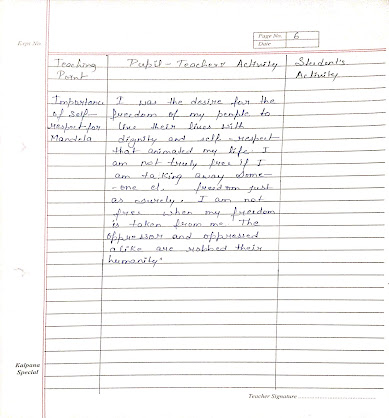 Page No. 6
Date
Expt. No.
Teaching Point
Pupil-Teacher Activity
Student's Activity
Importance
of self-
respect for
Mandela
I was the desire for the
freedom of my people to
live their lives with
dignity and self-respect
that animated my life. I
am not truly free if I
am taking away some-
-one el. freedom just
as surely. I am not
free when my freedom
is taken from me The
oppressor and oppressed
alike are robbed their
humanity.
Kalpana
Special
Teacher Signature